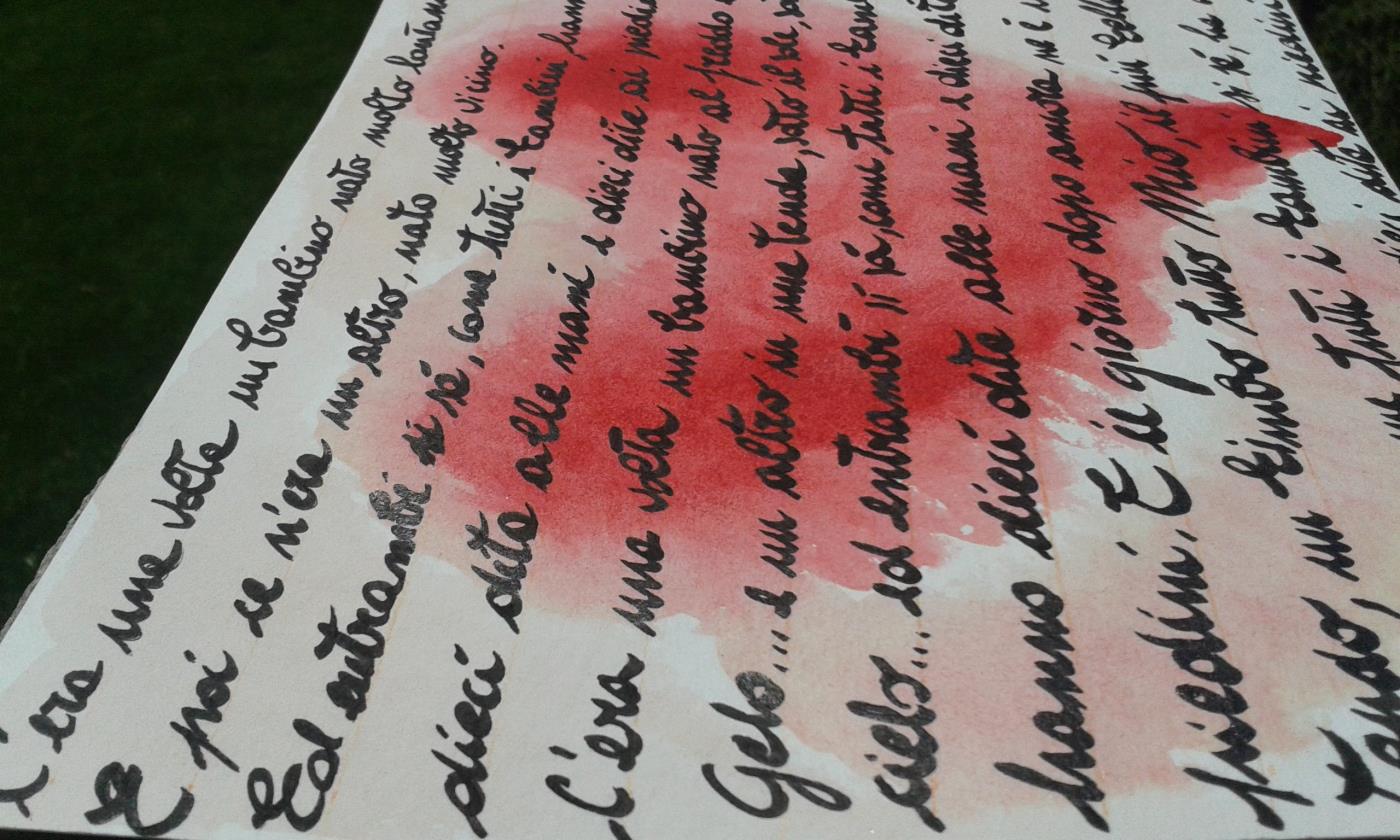 C'era una volta un bambino nato molto lontano
E poi ce n'era un altro, nato molto vicino.
Ed entrambi si sé, come tutti i bambini, hanno
dieci dita alle mani e dieci dita ai piedini
C'era una volta un bambino nato al freddo e
Gelo... e un altro in una tenda, sotto il sole,
cielo... ed entrambi si sá, come tutti i bambini
hanno dieci dita alle mani e dieci dita
piedini. E il giorno dopo ancora ne è
Tondo, un bimbo tutto Mio, il più bello
un Tutti i bambini si sé, ha
dieci dita ai piedini